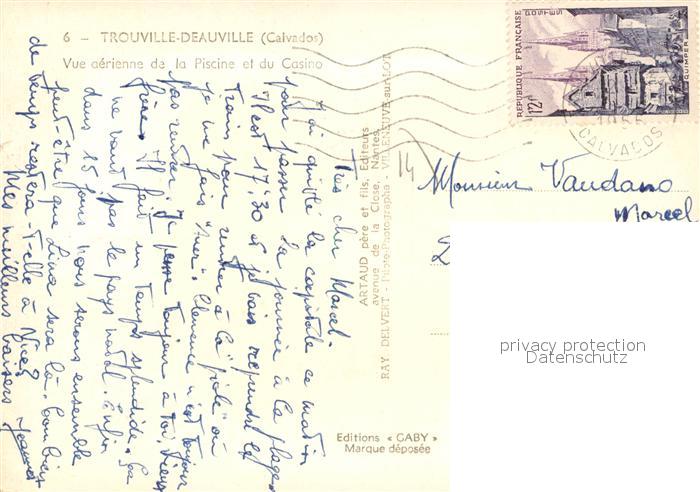 6 - TROUVILLE-DEAUVILLE (Calvados)
Vue aérienne de la Piscine et du Casino
REPUBLIQUE FRANÇAISE
POSTES
QUIMPER
12F
1955
CALVADOS
14
Monsieur Vaudano
Marcel
ARTAUD père et fils, Editeurs
avenue de la Close, Nantes
RAY DELVERT - Pilote-Photographe - VILLENEUVE-sur-LOT
Très cher Marcel-
J'ai quitté la capitale ce matin
pour passer la journée à la plage.
Il est 17h30 et je vais reprendre le
train pour rentrer à la "piole" où
je me fais Clemence n'est toujours
pas rentrée. Je pense toujours à toi,
Il fait un temps splendide. Ça
ne vaut pas le pays natal. Enfin
dans 15 jours nous serons ensemble
peut-être que Lina sera là. Combien
de temps restera-t-elle à Nice?
Mes meilleurs baisers
Editions « GABY »
Marque déposée
privacy protection
Datenschutz